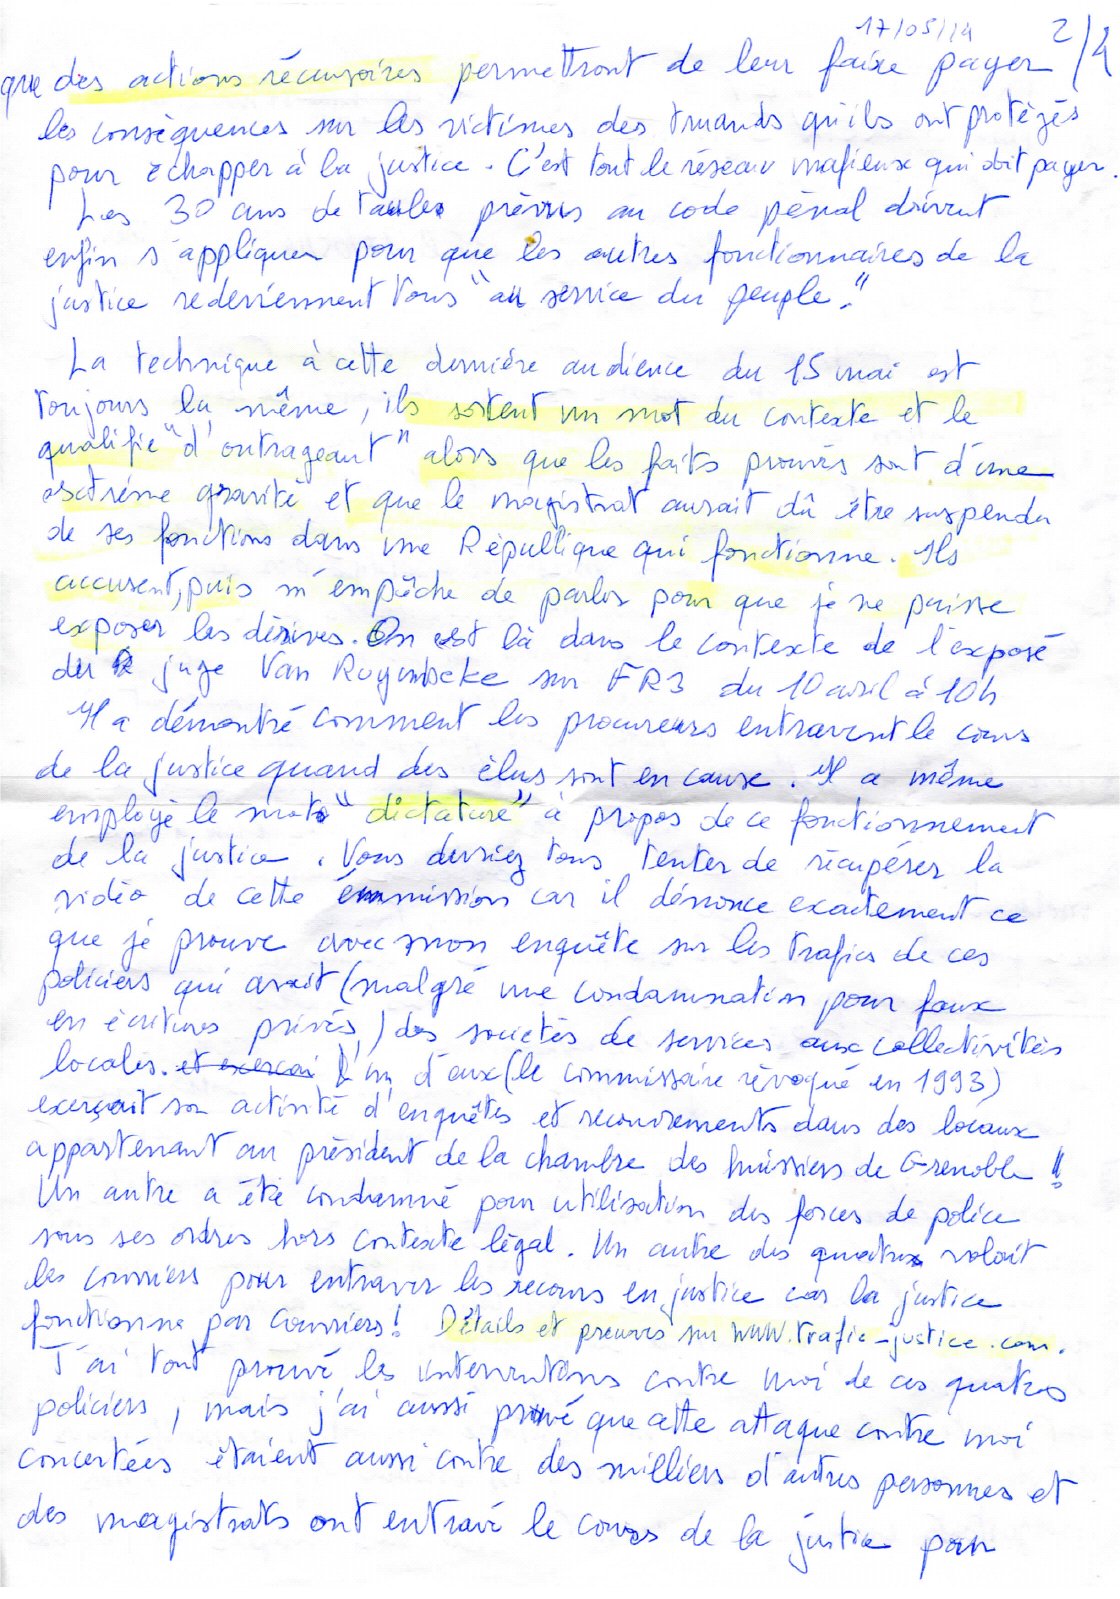 17/05/14 2/4
que des actions récursoires permettront de leur faire payer
les conséquences sur les victimes des truands qu'ils ont protégés
pour échapper à la justice. C'est tout le réseau mafieux qui doit payer.
Les 30 ans de taule prévus au code pénal doivent
enfin s'appliquer pour que les autres fonctionnaires de la
justice redeviennent tous "au service du peuple."
La technique à cette dernière audience du 15 mai est
toujours la même, ils sortent un mot du contexte et le
qualifie "d'outrageant" alors que les faits prouvés sont d'une
extrême gravité et que le magistrat aurait dû être suspendu
de ses fonctions dans une République qui fonctionne. Ils
accusent, puis m'empêche de parler pour que je ne puisse
exposer les dérives. On est là dans le contexte de l'exposé
du juge Van Ruymbeke sur FR3 du 10 avril à 10h
Il a démontré comment les procureurs entravent le cours
de la justice quand des élus sont en cause. Il a même
employé le mot "dictature" à propos de ce fonctionnement
de la justice. Vous devriez tous tenter de récupérer la
vidéo de cette émmission car il dénonce exactement ce
que je prouve avec mon enquête sur les trafics de ces
policiers qui avait (malgré une condamnation pour faux
en écritures privés) des sociétés de services aux collectivités
locales. et exerçai L'un d'eux (le commissaire révoqué en 1993)
exerçait son activité d'enquêtes et recouvrements dans des locaux
appartenant au président de la chambre des huissiers de Grenoble !!
Un autre a été condamné pour utilisation des forces de police
sous ses ordres hors contexte légal. Un autre des quatre volait
les courriers pour entraver les recours en justice car la justice
fonctionne par courriers! Détails et preuves sur www.trafic-justice.com.
J'ai tout prouvé les interventions contre moi de ces quatres
policiers, mais j'ai aussi prouvé que cette attaque contre moi
concertées étaient aussi contre des milliers d'autres personnes et
des magistrats ont entravé le cours de la justice pour